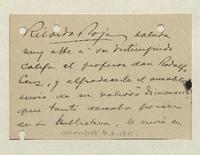 Ricardo Rojas saluda
muy atte a su distinguido
colega el profesor don Rodolfo
Lenz, y al agradecerle el amable
envío de su valioso Diccionario
que tanto deseaba poseer
en su biblioteca, le envía